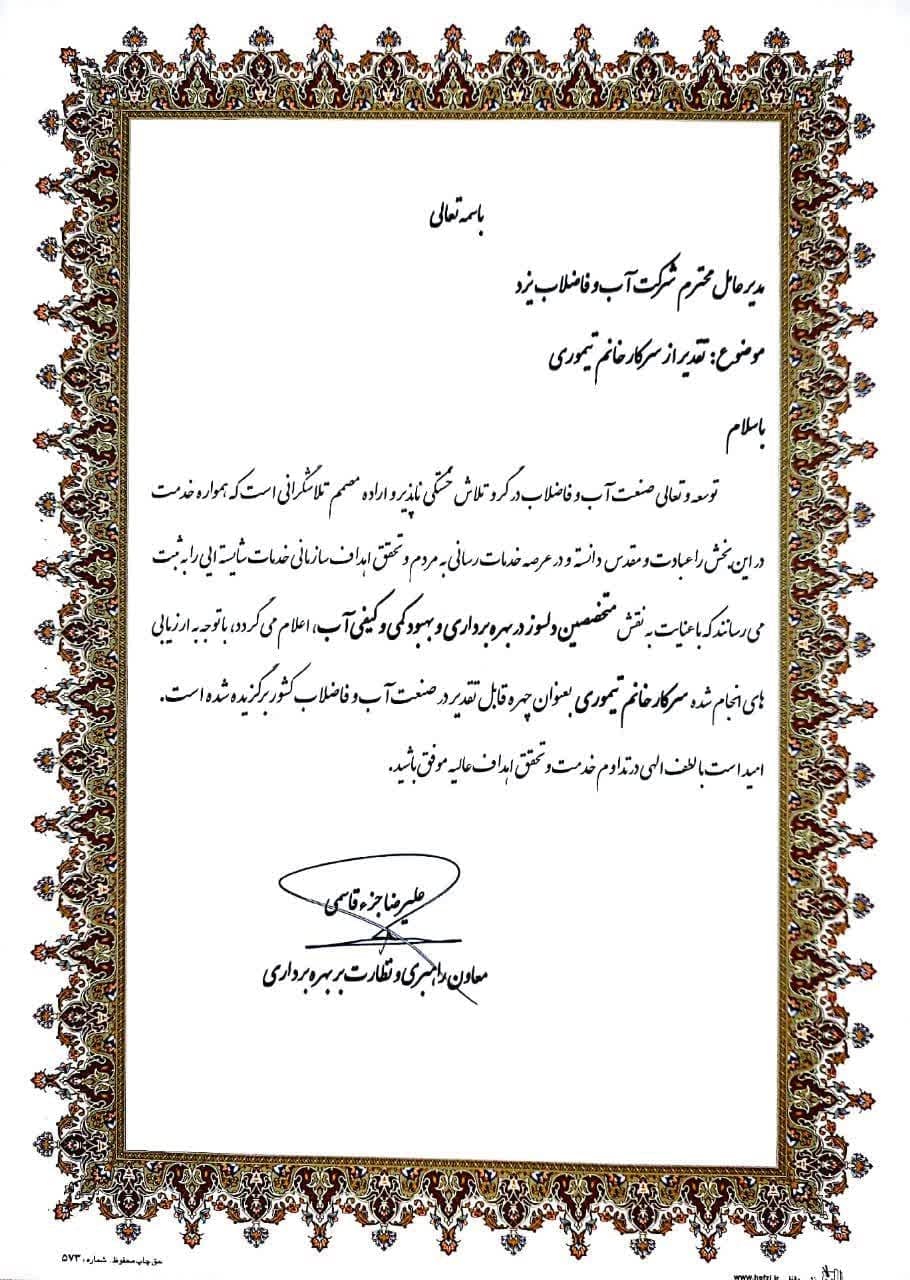 باسمه تعالی
مدیر عامل محترم شرکت آب و فاضلاب یزد
موضوع: تقدیر از سرکار خانم تیموری
باسلام
توسعه و تعالی صنعت آب و فاضلاب در گرد تلاش خستگی ناپذیر و اراده مصمم تلاشگرانی است که همواره خدمت
در این بخش را عبادت و مقدس دانسته و در عرصه خدمات رسانی به مردم و تحقق اهداف سازمانی خدمات شایسته ایی را به ثبت
می رسانند که با عنایت به نقش متخصصین دلسوز در بهره برداری و بهبود کمی و کیفی آب، اعلام می گردد، با توجه به ارزیابی
های انجام شده سرکار خانم تیموری بعنوان چهره قابل تقدیر در صنعت آب و فاضلاب کشور برگزیده شده است.
امید است با لطف الهی در تداوم خدمت و تحقق اهداف عالیه موفق باشید.
علیرضا جزء قاسمی
معاون راهبری و نظارت بر بهره برداری
حق چاپ محفوظ. شماره: ۵۷۳